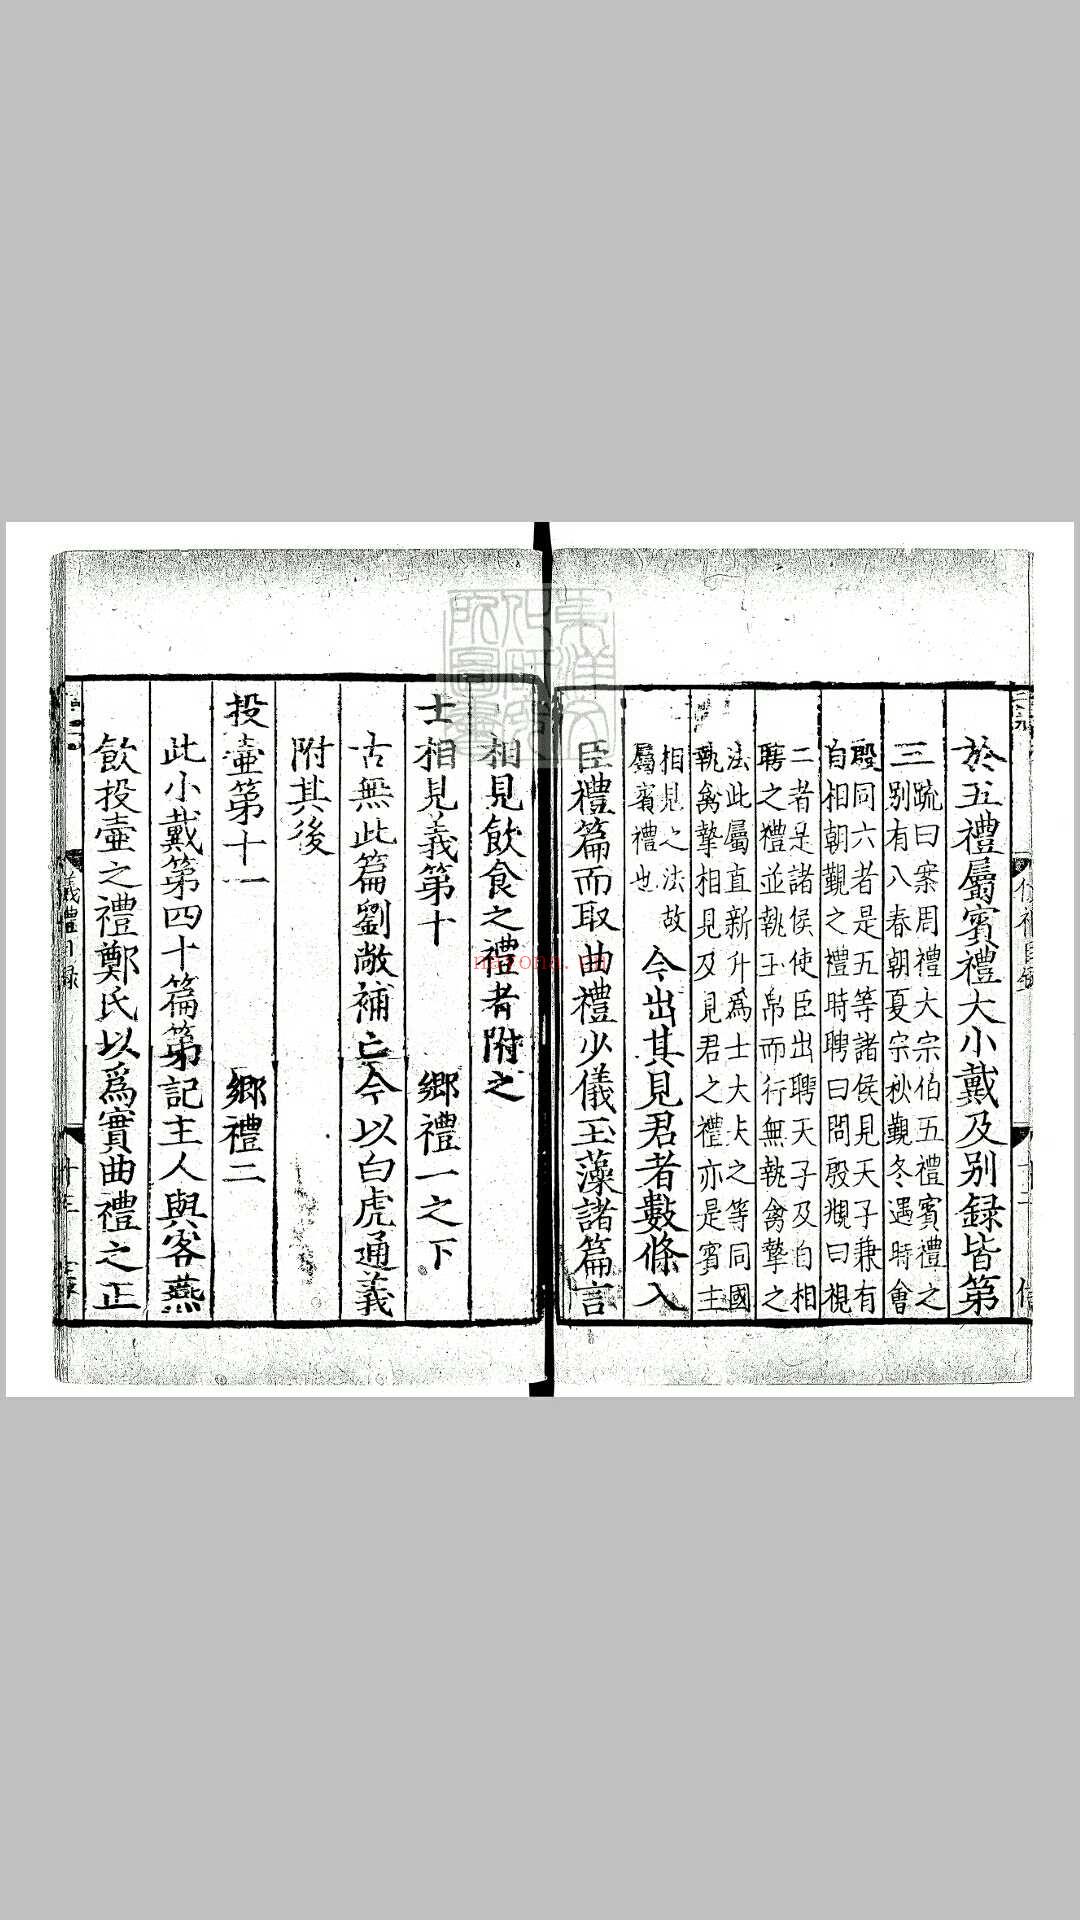 於五禮屬賓禮大小戴及别録皆第
三
疏曰案周禮大宗伯五禮賓禮之
别有八春朝夏宗秋覲冬遇時會
殷同六者是五等諸侯見天子兼有
自相朝覲之禮時聘曰問殷覜曰視
二者是諸侯使臣出聘天子及自相
聘之禮並執玉帛而行無執禽摯之
法此屬直新升爲士大夫之等同國
執禽摯相見及見君之禮亦是賓主
相見之法故
屬賓禮也
今出其見君者數條入
臣禮篇而取曲禮少儀玉藻諸篇言
相見飲食之禮者附之
士相見義第十 鄉禮一之下
古無此篇劉敞補亡今以白虎通義
附其後
投壷第十一 鄉禮二
此小戴第四十篇第記主人與客燕
飲投壷之禮鄭氏以爲實曲禮之正
儀禮目録 十三
nayona.cn